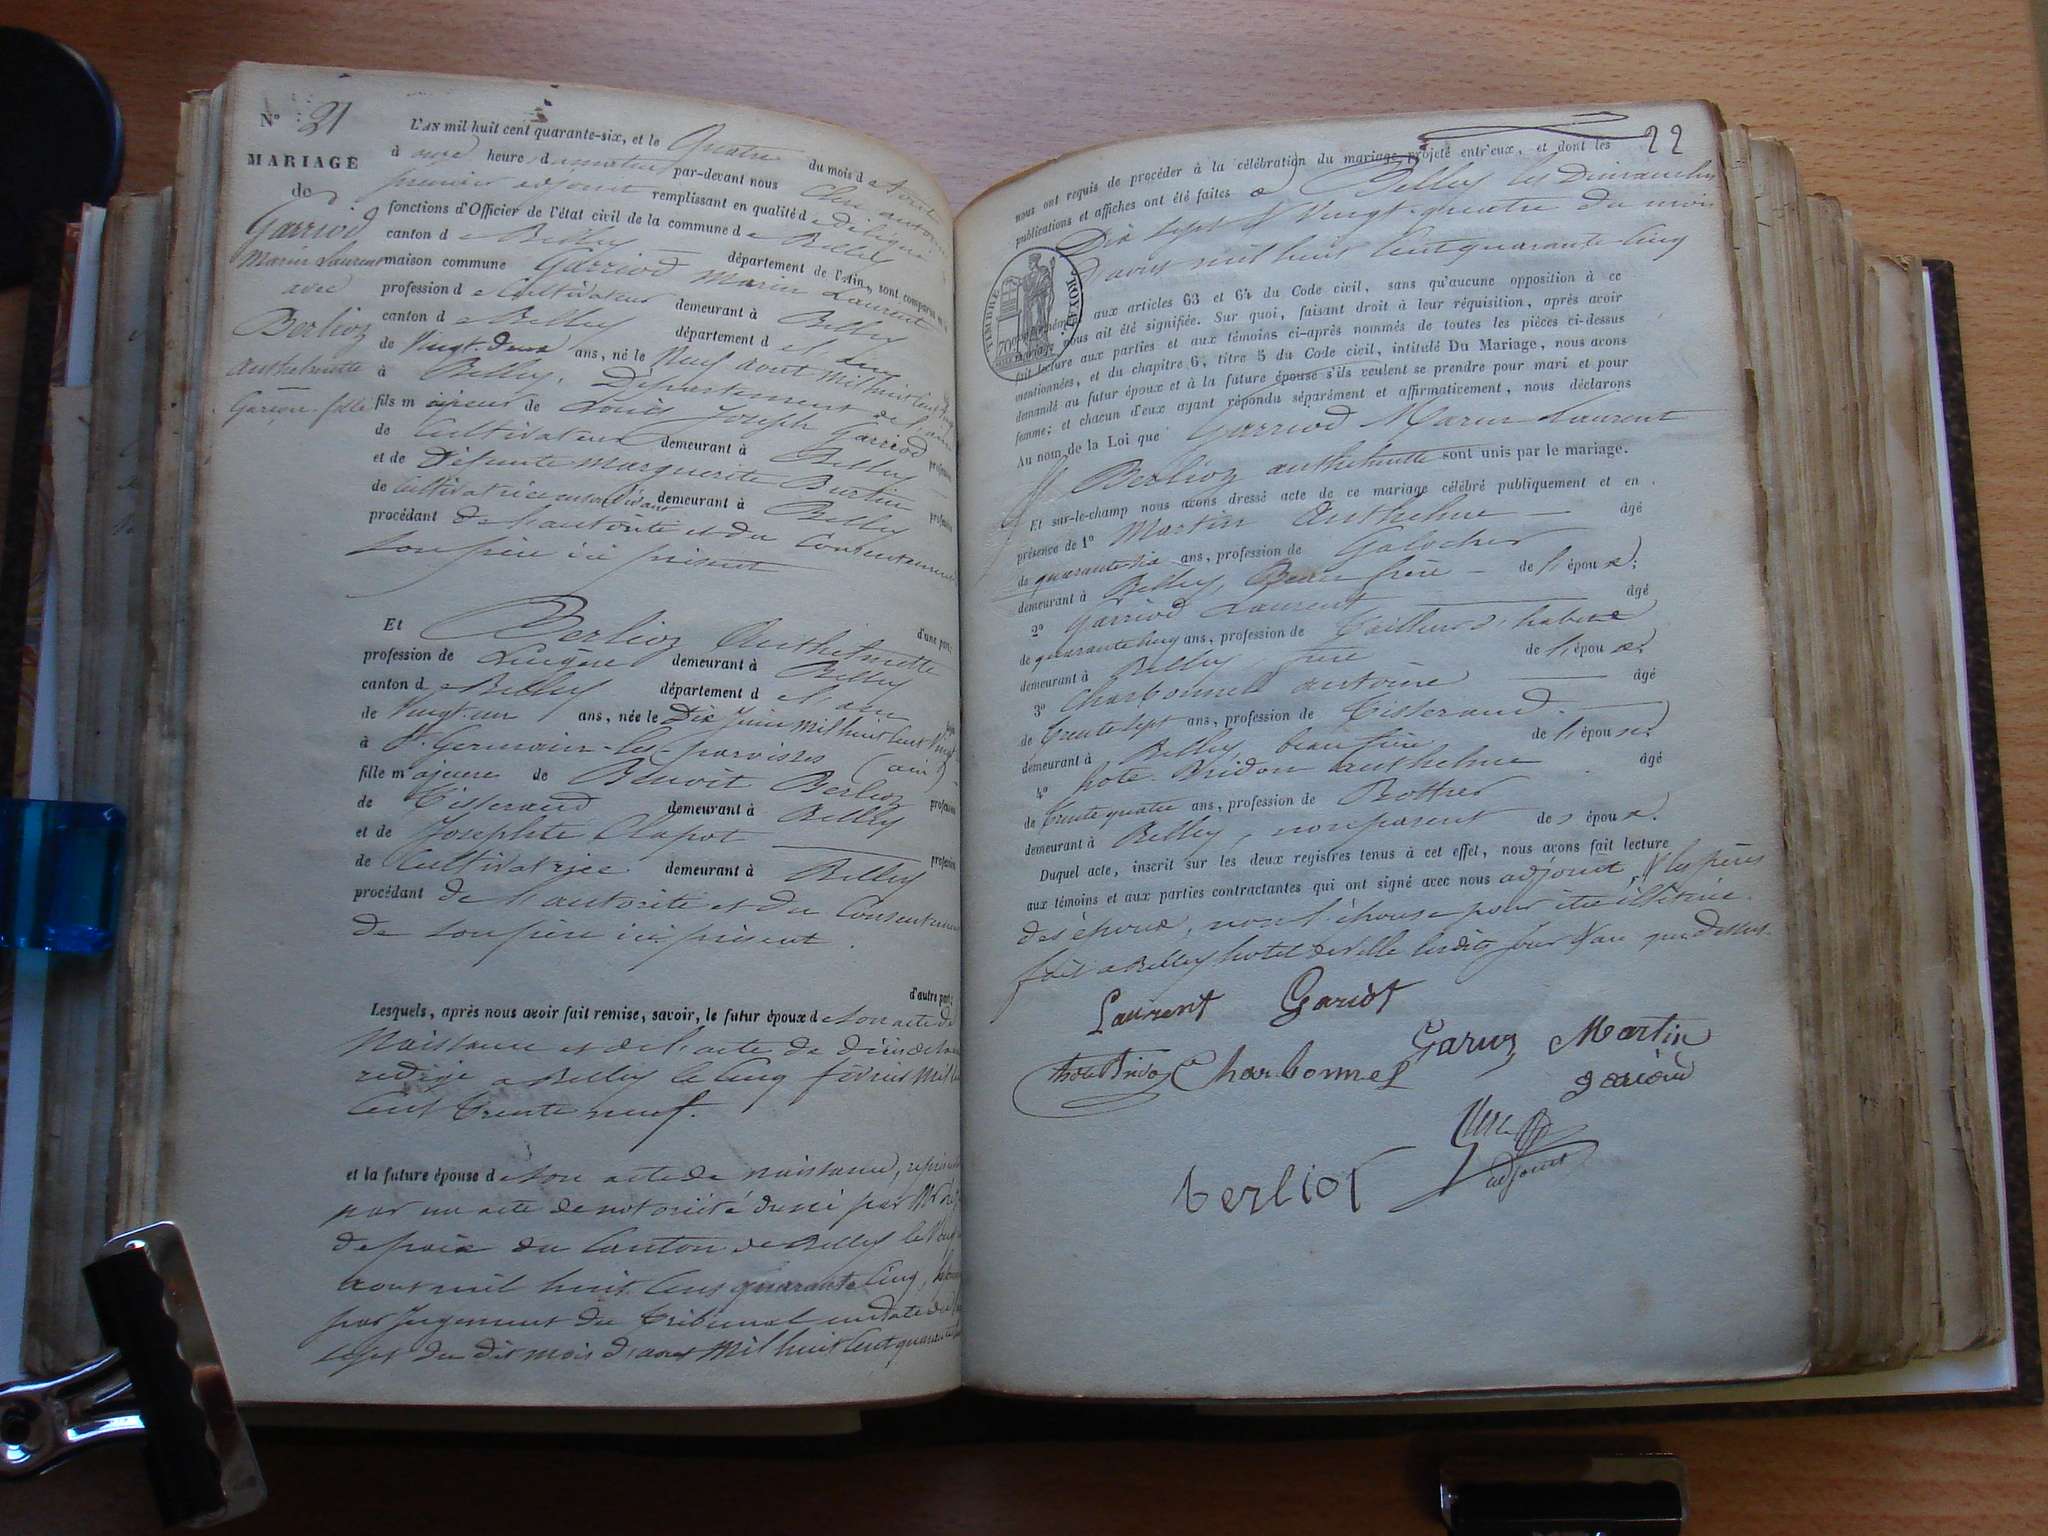 N° 21
MARIAGE
de
Garriod
Marin Laurent
avec
Berlioz
Anthelmette
Garçon-fille
L'AN mil huit cent quarante-six, et le Quatre du mois d
à onze heure du matin par-devant nous
premier adjoint remplissant en qualité de délégué
fonctions d'Officier de l'état civil de la commune de Belley
canton de Belley département de l'Ain, sont comparus en la
maison commune Garriod Marin Laurent
profession de Cultivateur demeurant à Belley
canton de Belley département de l'ain
de Vingt-deux ans, né le Neuf aout mil huit cent
à Belley, Département de l'ain
fils majeur de Louis Joseph Garriod profession
de Cultivateur demeurant à Belley
et de Défunte Marguerite Burtin profession
de Cultivatrice demeurant à Belley
procédant de l'autorité et du Consentement
son père ici présent
d'une part;
Et Berlioz Anthelmette
profession de Lingère demeurant à Belley
canton de Belley département de l'ain
de Vingt-un ans, née le Dix Juin mil huit cent Vingt
à St Germain-les-paroisses (ain)
fille majeure de Benoit Berlioz profession
de Tisserand demeurant à Belley
et de Josephte Clapot profession
de Cultivatrice demeurant à Belley
procédant de l'autorité et du Consentement
de son père ici présent.
d'autre part;
Lesquels, après nous avoir fait remise, savoir, le futur époux de son acte de
Naissance et de l'acte de décès de sa
rédigé a Belley le cinq février mil
cent trente neuf.
et la future épouse de son acte de naissance,
par un acte de notoriété dressé par Mr
de paix du Canton de Belley le
aout mil huit cent quarante cinq,
par Jugement du Tribunal en date du
sept du dit mois d'aout mil huit cent quarante
22
nous ont requis de procéder à la célébration du mariage projeté entr'eux, et dont les
publications et affiches ont été faites a Belley les Dimanches
Dix sept & Vingt-quatre du mois
d'aout mil huit cent quarante cinq
TIMBRE ROYAL
70c
aux articles 63 et 64 du Code civil, sans qu'aucune opposition à ce
nous ait été signifiée. Sur quoi, faisant droit à leur réquisition, après avoir
fait lecture aux parties et aux témoins ci-après nommés de toutes les pièces ci-dessus
mentionnées, et du chapitre 6, titre 5 du Code civil, intitulé Du Mariage, nous avons
demandé au futur époux et à la future épouse s'ils veulent se prendre pour mari et pour
femme; et chacun d'eux ayant répondu séparément et affirmativement, nous déclarons
Au nom de la Loi que Garriod Marin Laurent
& Berlioz anthelmette sont unis par le mariage.
Et sur-le-champ nous avons dressé acte de ce mariage célébré publiquement et en
présence de 1° Martin Anthelme âgé
de quarante six ans, profession de Galocher
demeurant à Belley, Beau frère de l'époux;
2° Garriod Laurent âgé
de quarante cinq ans, profession de Tailleur d'habits
demeurant à Belley frère de l'époux.
3° Charbonnet antoine âgé
de trente sept ans, profession de Tisserand.
demeurant à Belley, beau frère de l'époux.
4° hote-Bridon anthelme âgé
de trente quatre ans, profession de Bottier
demeurant à Belley, non parent des époux.
Duquel acte, inscrit sur les deux registres tenus à cet effet, nous avons fait lecture
aux témoins et aux parties contractantes qui ont signé avec nous adjoint, & les pères
des époux, non l'épouse pour être illétrée.
fait a Belley hotel de ville les dits jour & an que dessus
Laurent Gariot
Martin
hote Bridon Charbonnet
adjoint
berliot